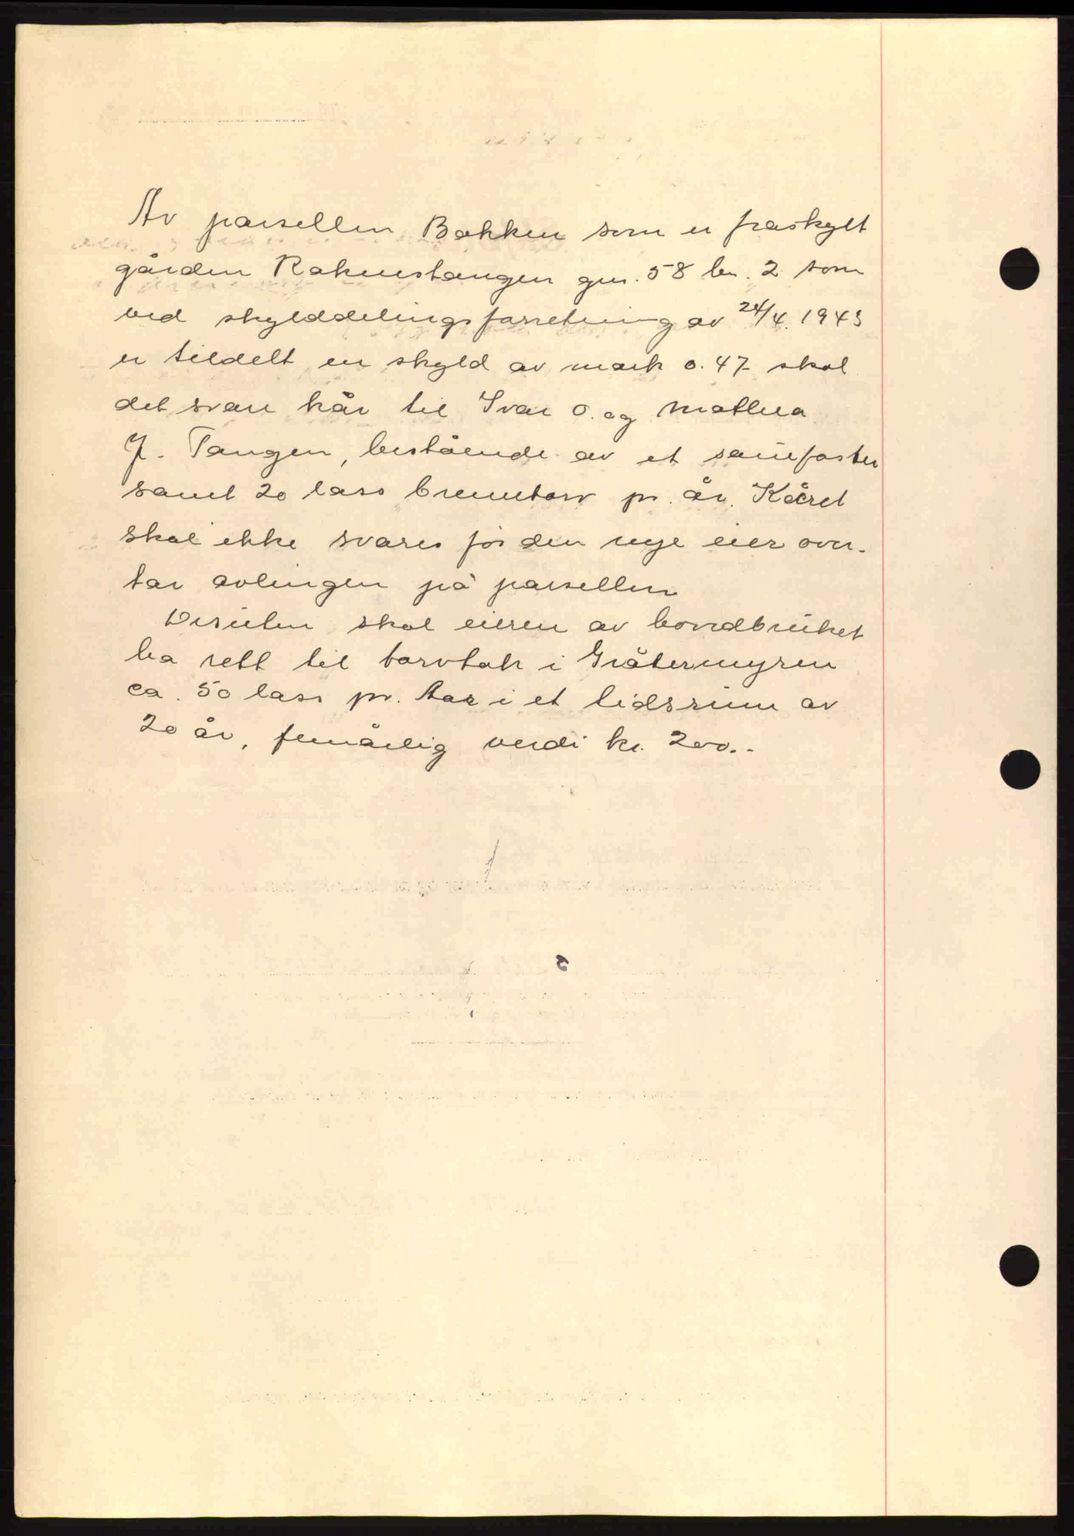 Av parsellen Bakken som er fraskylt
gården Raknestangen gnr. 58 bn. 2 som
ved skylddelingsforretning av 24/4. 1943
er tildelt en skyld av mark 0.47 skal
det svare kår til Ivar O. og Mathea
J. Tangen, bestående av et sauefoster
samt 20 lass brenntorv pr. år. Kåret
skal ikke svares før den nye eier over-
tar avlingen på parsellen
Desuten skal eieren av hovedbruket
ha rett til torvtak i Gråtermyren
ca. 50 lass pr. Aar i et tidsrum av
20 år, femårlig verdi kr. 200.-